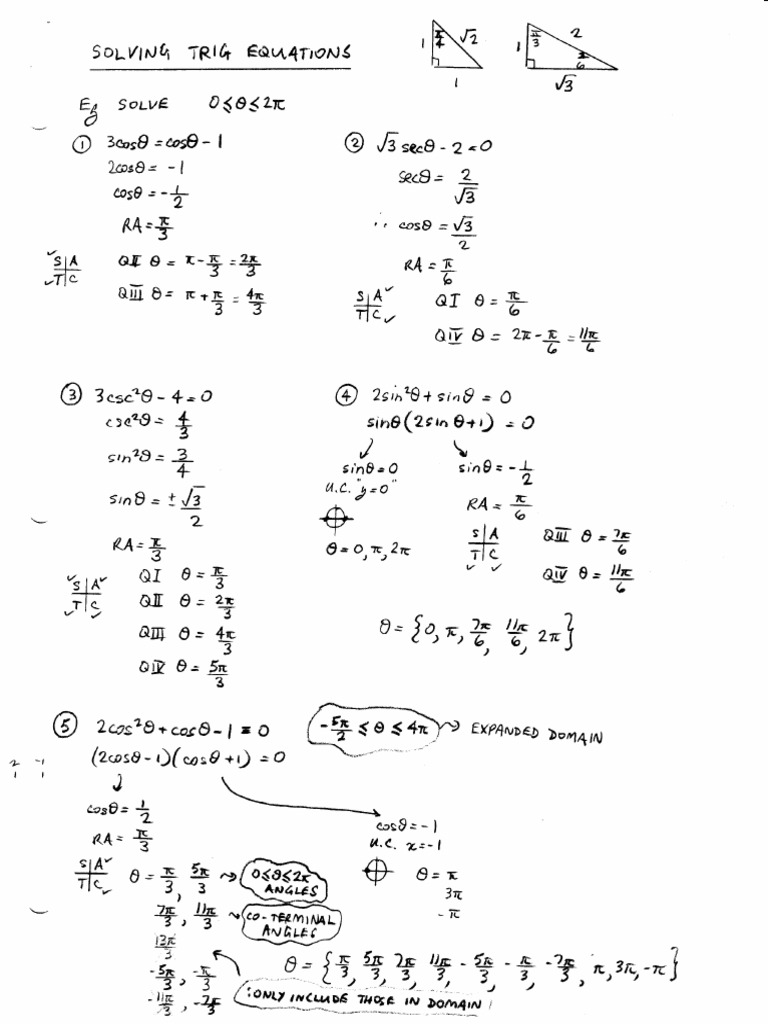 SOLVING TRIG EQUATIONS
1 π/4 √2 1
1 π/3 2 π/6 √3
Eg SOLVE 0≤θ≤2π
① 3cosθ = cosθ - 1
2cosθ = -1
cosθ = -1/2
RA = π/3
✓S|A
✓T|C
QII θ = π - π/3 = 2π/3
QIII θ = π + π/3 = 4π/3
② √3 secθ - 2 = 0
secθ = 2/√3
∴ cosθ = √3/2
RA = π/6
S|A✓
T|C✓
QI θ = π/6
QIV θ = 2π - π/6 = 11π/6
③ 3csc²θ - 4 = 0
csc²θ = 4/3
sin²θ = 3/4
sinθ = ± √3/2
RA = π/3
✓S|A✓
✓T|C✓
QI θ = π/3
QII θ = 2π/3
QIII θ = 4π/3
QIV θ = 5π/3
④ 2sin²θ + sinθ = 0
sinθ(2sinθ+1) = 0
sinθ = 0
U.C. "y=0"
θ = 0, π, 2π
sinθ = -1/2
RA = π/6
S|A
T|C
✓ ✓
QIII θ = 7π/6
QIV θ = 11π/6
θ = {0, π, 7π/6, 11π/6, 2π}
⑤ 2cos²θ + cosθ - 1 = 0
-5π/2 ≤ θ ≤ 4π → EXPANDED DOMAIN
(2cosθ-1)(cosθ+1) = 0
2 -1
1 1
cosθ = 1/2
RA = π/3
S|A✓
T|C✓
θ = π/3, 5π/3 → 0≤θ≤2π ANGLES
7π/3, 11π/3 → CO-TERMINAL ANGLES
13π/3
-5π/3, -π/3
-11π/3, -7π/3
cosθ = -1
U.C. x=-1
θ = π
3π
-π
θ = {π/3, 5π/3, 7π/3, 11π/3, -5π/3, -π/3, -7π/3, π, 3π, -π}
:ONLY INCLUDE THOSE IN DOMAIN!